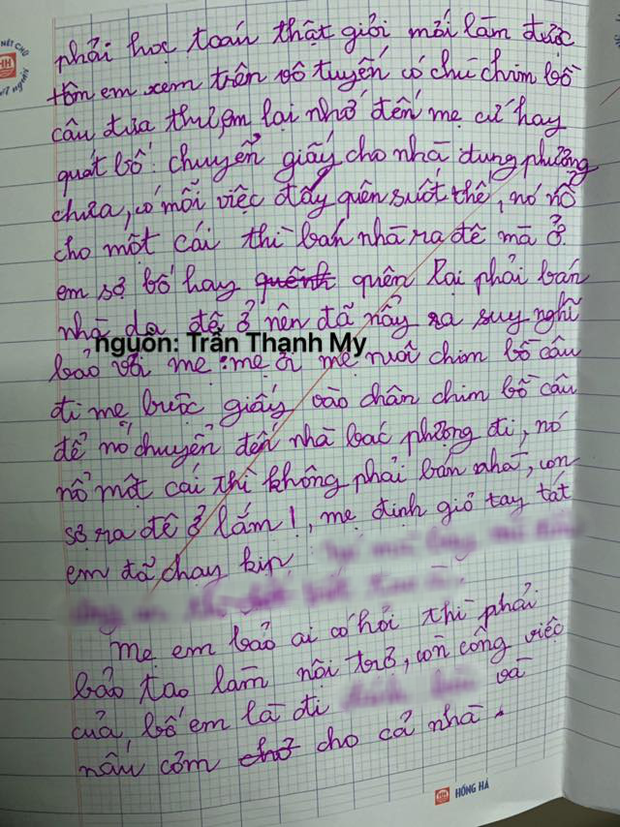 phải học toán thật giỏi mới làm được
tôm em xem trên vô tuyến có chú chim bồ
câu đưa thư, em lại nhớ đến mẹ cứ hay
quát bố: chuyển giấy cho nhà dung phượng
chưa, có mỗi việc đấy quên suốt thế, nó nổ
cho một cái thì bán nhà ra đê mà ở.
em sợ bố hay quên lại phải bán
nhà da đê ở nên đã nảy ra suy nghĩ
nguồn: Trần Thanh My
bảo với mẹ: mẹ ơi mẹ nuôi chim bồ câu
đi mẹ buộc giấy vào chân chim bồ câu
để nó chuyển đến nhà bác phượng đi, nó
nổ một cái thì không phải bán nhà, con
sợ ra đê ở lắm!, mẹ định giơ tay tát
em đã chạy kịp
mẹ em bảo ai có hỏi thì phải
bảo tao làm nội trợ, còn công việc
của bố em là đi và
nấu cơm cho cả nhà.
HH HỒNG HÀ
NÉT CHỮ